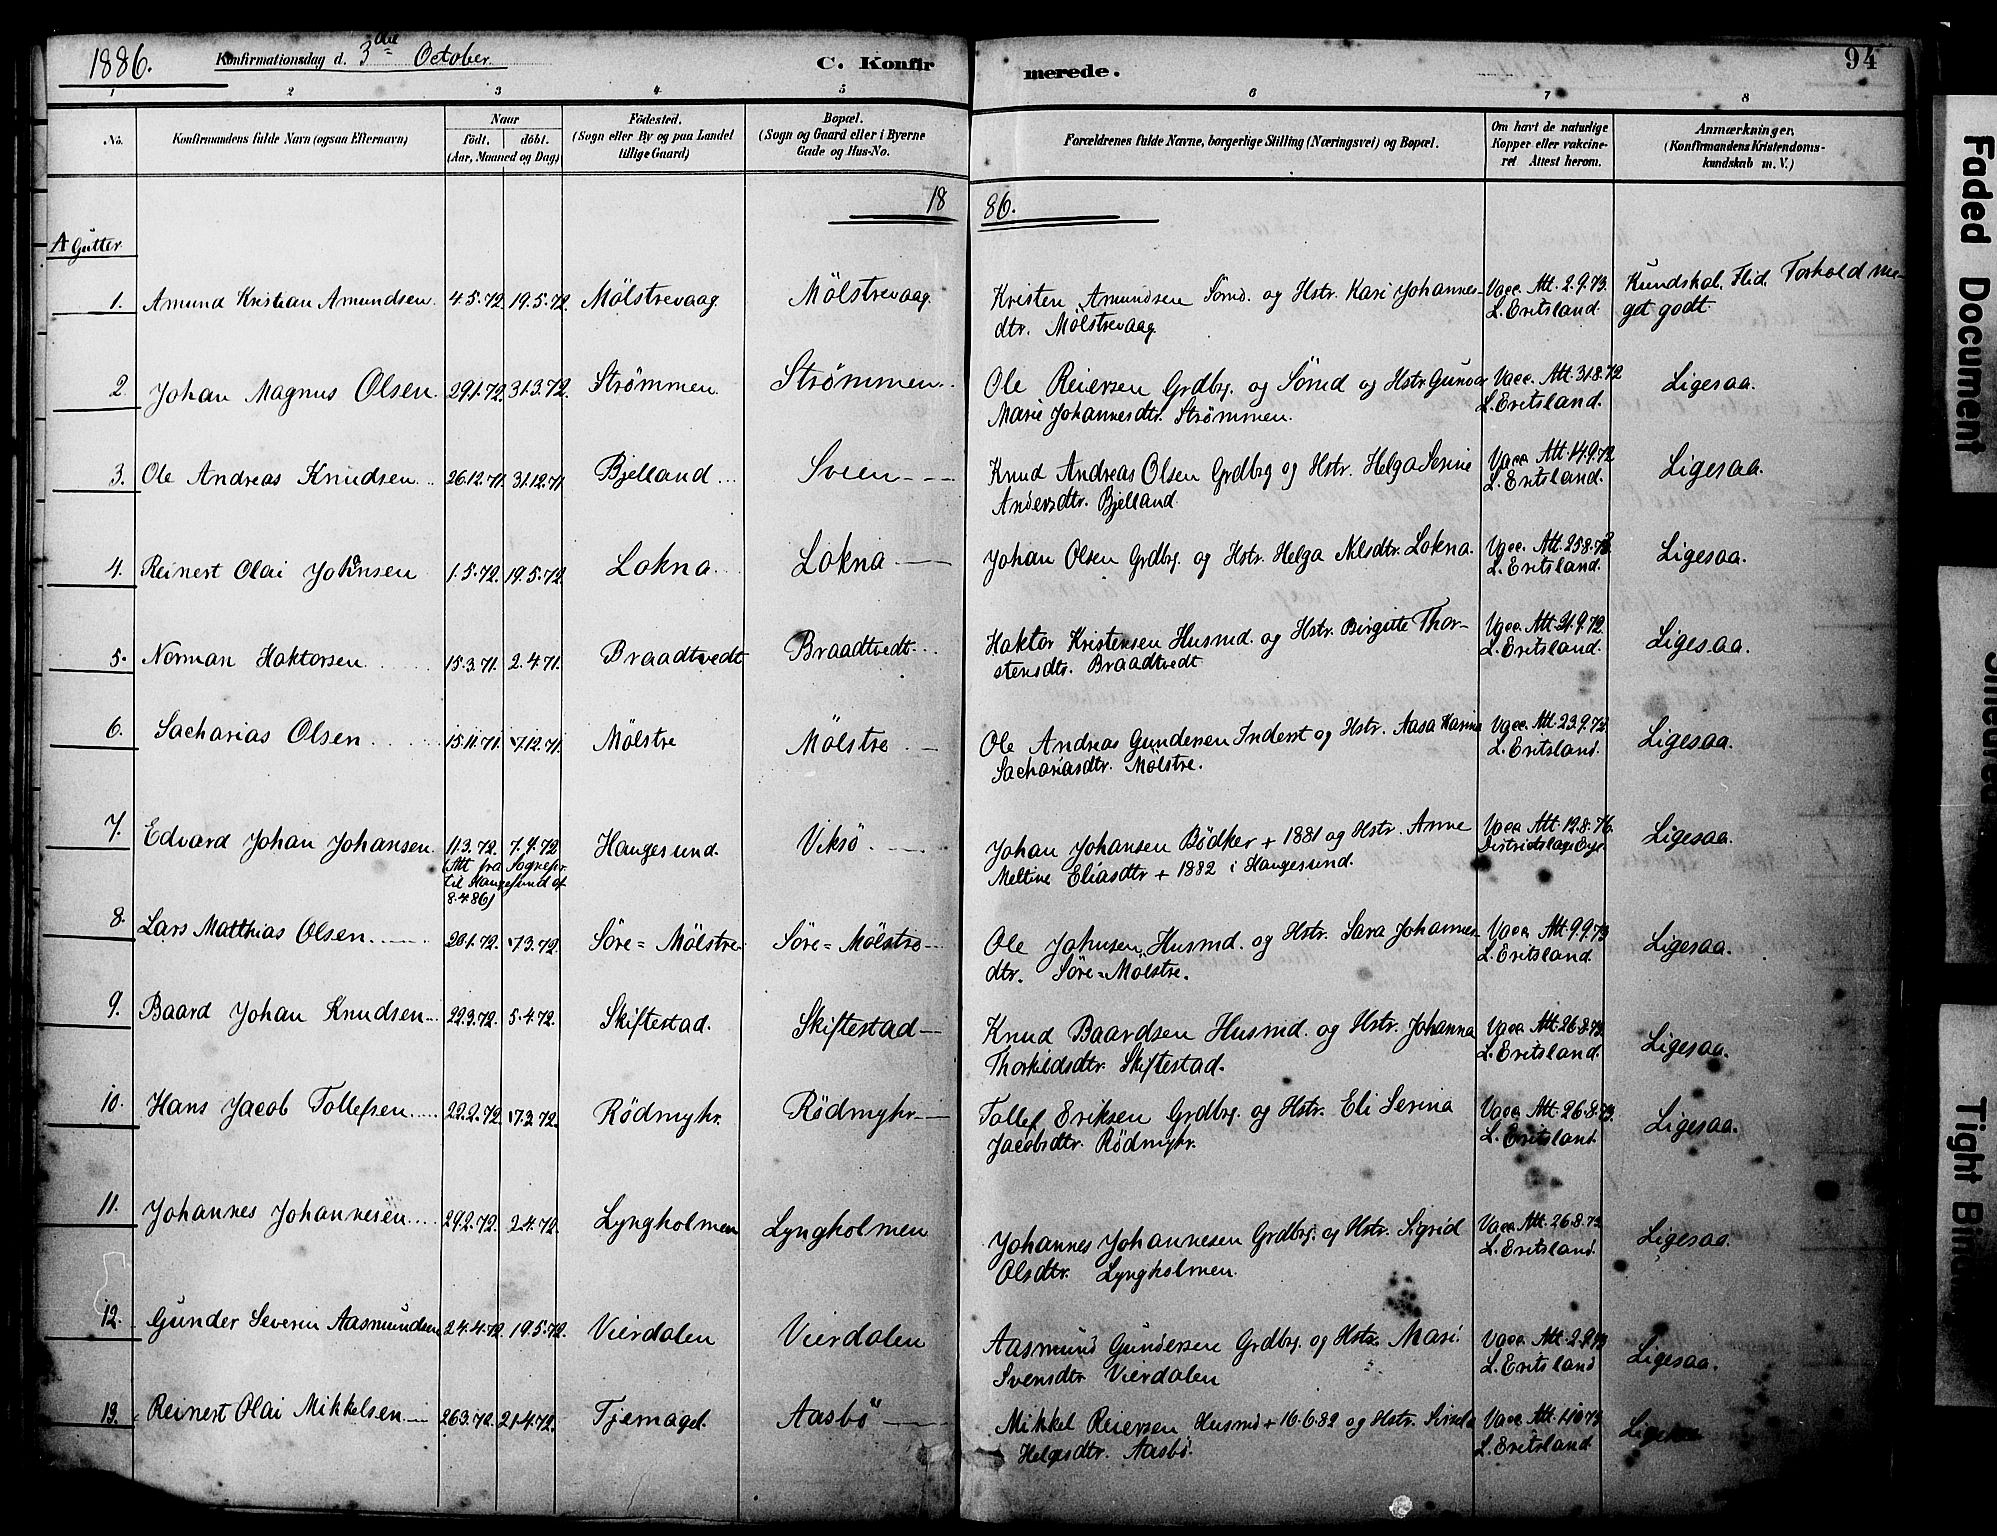 1886. Konfirmationsdag d. 3die October. C. Konfirmerede. 94
1 2 3 4 5 6 7 8
No. Konfirmandens fulde Navn (ogsaa Efternavn) Naar født. døbt. (Aar, Maaned og Dag)
Fødested. (Sogn eller By og paa Landet tillige Gaard)
Bopæl. (Sogn og Gaard eller i Byerne Gade og Hus-No.
Forældrenes fulde Navne, borgerlige Stilling (Næringsvei) og Bopæl.
Om havt de naturlige Kopper eller vakcineret Attest herom.
Anmærkninger. (Konfirmandens Kristendomskundskab m. V.)
1886.
A Gutter.
1. Amund Kristian Amundsen 4.5.72 19.5.72. Mölstrevaag Mölstrevaag Kristen Amundsen Sömd. og Hstr. Kari Johannes- Vacc. Att. 2.9.73. Kundskab. Flid. Forhold me-
dtr. Mölstrevaag L. Eritsland. get godt
2. Johan Magnus Olsen 29.1.72. 31.3.72. Strømmen Strømmen Ole Reiersen Grdbrg. og Sömd og Hstr. Gunda Vacc. Att. 31.8.72 Ligesaa.
Marie Johannesdtr. Strømmen. L. Eritsland.
3. Ole Andreas Knudsen 26.12.71. 31.12.71 Bjelland Sveen Knud Andreas Olsen Grdbrg og Hstr. Helga Serine Vacc Att. 14.9.72 Ligesaa.
Andersdtr. Bjelland L. Eritsland.
4. Reinert Olai Johnsen 1.5.72. 19.5.72. Lokna Lokna Johan Olsen Grdbrg. og Hstr. Helga Nlsdtr. Lokna. Vacc. Att. 25.8.73 Ligesaa.
L. Eritsland.
5. Norman Haktorsen 15.3.71. 2.4.71. Braadtvedt Braadtvedt Haktor Kristensen Husmd. og Hstr. Birgitte Thor- Vacc. Att. 21.9.72. Ligesaa.
stensdtr. Braadtvedt L. Eritsland.
6. Sacharias Olsen 15.11.71. 17.12.71. Mölstre Mölstre Ole Andreas Gundersen Inderst og Hstr. Aasa Karina Vacc. Att. 23.9.72. Ligesaa.
Sachariasdtr. Mölstre. L. Eritsland.
7. Edvard Johan Johansen 11.3.72. 7.9.72 Haugesund. Viksö Johan Johansen Bödker + 1881 og Hstr. Anne Vacc Att. 12.8.76. Ligesaa.
(Att fra Sognepr. Meltine Eliasdtr + 1882 i Haugesund.
til Haugesund af
8.4.86)
8. Lars Matthias Olsen 20.1.72. 17.3.72. Söre=Mölstre Söre=Mölstre Ole Johnsen Husmd. og Hstr. Sara Johannes- Vacc Att. 9.9.73 Ligesaa.
dtr. Söre=Mölstre. L. Eritsland.
9. Baard Johan Knudsen 22.3.72. 5.4.72. Skiftestad. Skiftestad Knud Baardsen Husmd. og Hstr. Johanna Vacc Att. 26.8.73. Ligesaa.
Thorkildsdtr. Skiftestad. L. Eritsland.
10. Hans Jacob Tollefsen 22.2.72. 17.3.72. Rödmyhr. Rödmyhr Tollef Eriksen Grdbrg. og Hstr. Eli Serina Vacc Att. 26.8.73. Ligesaa.
Jacobsdtr. Rödmyhr. L. Eritsland.
11. Johannes Johannesen 29.2.72. 2.4.72. Lyngholmen Lyngholmen Johannes Johannesen Grdbrg. og Hstr. Sigrid Vacc. Att. 26.8.73 Ligesaa.
Olsdtr. Lyngholmen. L. Eritsland.
12. Gunder Severin Aasmundsen 24.4.72 19.5.72. Vierdalen Vierdalen Aasmund Gundersen Grdbrg. og Hstr. Mari Vacc Att. 2.9.73 Ligesaa.
Svensdtr Vierdalen L. Eritsland
13. Reinert Olai Mikkelsen 26.3.72. 21.4.72. Tjernagel Aasbö Mikkel Reiersen Husmd + 16.6.82 og Hstr. Vacc. Att. Ligesaa
Helgesdtr. Aasbö. L. Eritsland.
Faded Document
Tight